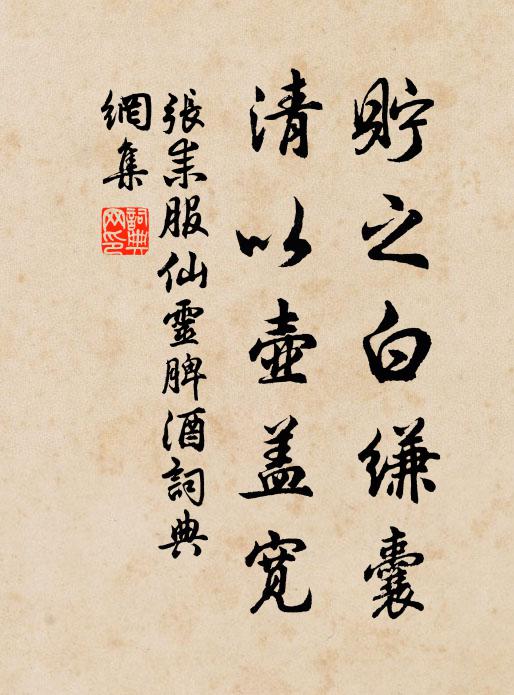 貯之白縑囊
清以壺盖寬
張耒服仙靈脾酒詞典
網集
詞典
网印